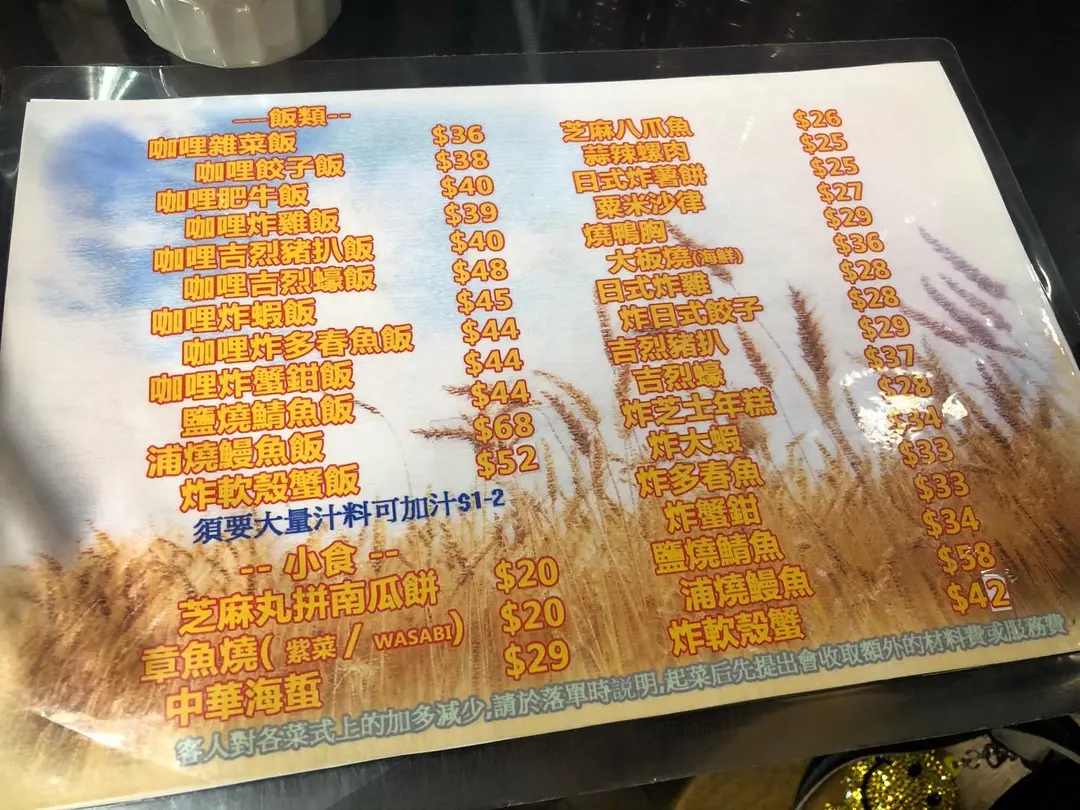 --飯類--
咖哩雜菜飯 $36
咖哩餃子飯 $38
咖哩肥牛飯 $40
咖哩炸雞飯 $39
咖哩吉烈豬扒飯 $40
咖哩吉烈蠔飯 $48
咖哩炸蝦飯 $45
咖哩炸多春魚飯 $44
咖哩炸蟹鉗飯 $44
鹽燒鯖魚飯 $44
浦燒鰻魚飯 $68
炸軟殼蟹飯 $52
須要大量汁料可加汁$1-2
-- 小食 --
芝麻丸拼南瓜餅 $20
章魚燒( 紫菜 / WASABI) $20
中華海蜇 $29
芝麻八爪魚 $26
蒜辣螺肉 $25
日式炸薯餅 $25
粟米沙律 $27
燒鴨胸 $29
大板燒(海鮮) $36
日式炸雞 $28
炸日式餃子 $28
吉烈豬扒 $29
吉烈蠔 $37
炸芝士年糕 $28
炸大蝦 $34
炸多春魚 $33
炸蟹鉗 $33
鹽燒鯖魚 $34
浦燒鰻魚 $58
炸軟殼蟹 $42
客人對各菜式上的加多減少,請於落單時說明,起菜后先提出會收取額外的材料費或服務費